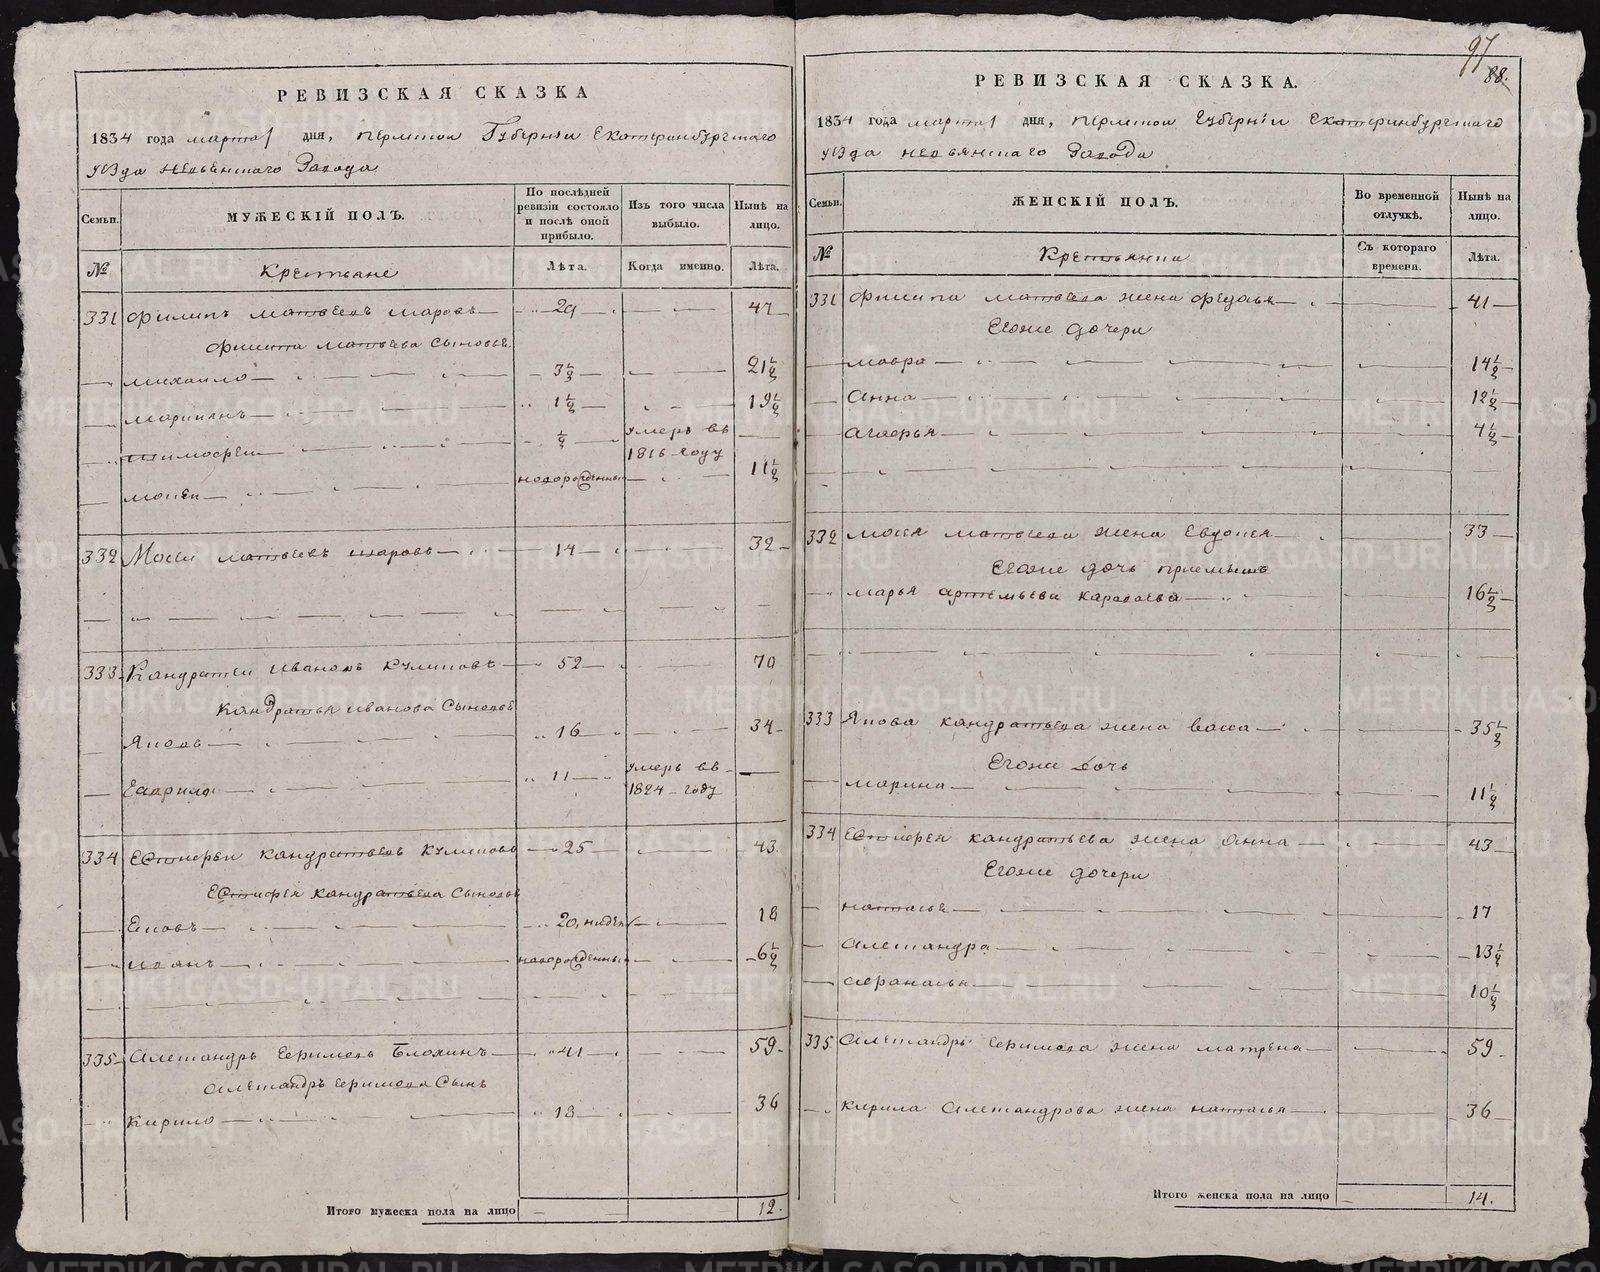 РЕВИЗСКАЯ СКАЗКА
1834 года марта 1 дня, пермской Губернии Екатеринбургскаго
уезда невьянскаго Завода
Семьи.
МУЖЕСКІЙ ПОЛЪ.
По послѣдней ревизіи состояло и послѣ оной прибыло.
Изъ того числа выбыло.
Нынѣ на лицо.
№
Крестьяне
Лѣта.
Когда именно.
Лѣта.
331 Филипъ матвеевъ 29 47
Филипа матвеева сыновье
михайло 3½ 21½
маркианъ 1½ 19½
тимофеи ½ умеръ въ 1816 году
мокеи новорожденныи 11½
332 Мосеи матвеевъ 14 32
333 Кандратеи Ивановъ куликовъ 52 70
Кандратья Иванова Сыновье
Яковъ 16 34
Гаврило 11 умеръ въ 1824 году
334 Естифеи кандратьевъ куликовъ 25 43
Естифея кандратьева Сыновье
Яковъ 20, недель 18
иванъ новорожденныи 6½
335 Александръ Ефимовъ Блохинъ 41 59
Александръ Ефимова Сынъ
Кирило 18 36
Итого мужеска пола на лицо 12.
97
88.
РЕВИЗСКАЯ СКАЗКА.
1834 года марта 1 дня, пермской Губерніи Екатеринбургскаго
уезда невьянскаго Завода
Семьи.
ЖЕНСКІЙ ПОЛЪ.
Во временной отлучкѣ.
Нынѣ на лицо.
№
Крестьянки
Съ котораго времени.
Лѣта.
331 Филипа матвеева жена федосья 41
Егоже дочери
мавра 14½
Анна 12½
агафья 4½
332 мосея матвеева жена Евдокея 33
Егоже дочь приемышъ
марья артемьева караваева 16½
333 Якова кандратьева жена васса 35½
Егоже дочь
марина 11½
334 Естифея кандратьева жена Анна 43
Егоже дочери
наталья 17
Александра 13½
Афанасья 10½
335. Александръ Ефимова жена матрена 59
кирила Александрова жена наталья 36
Итого женска пола на лицо 14.
METRIKI.GASO-URAL.RU